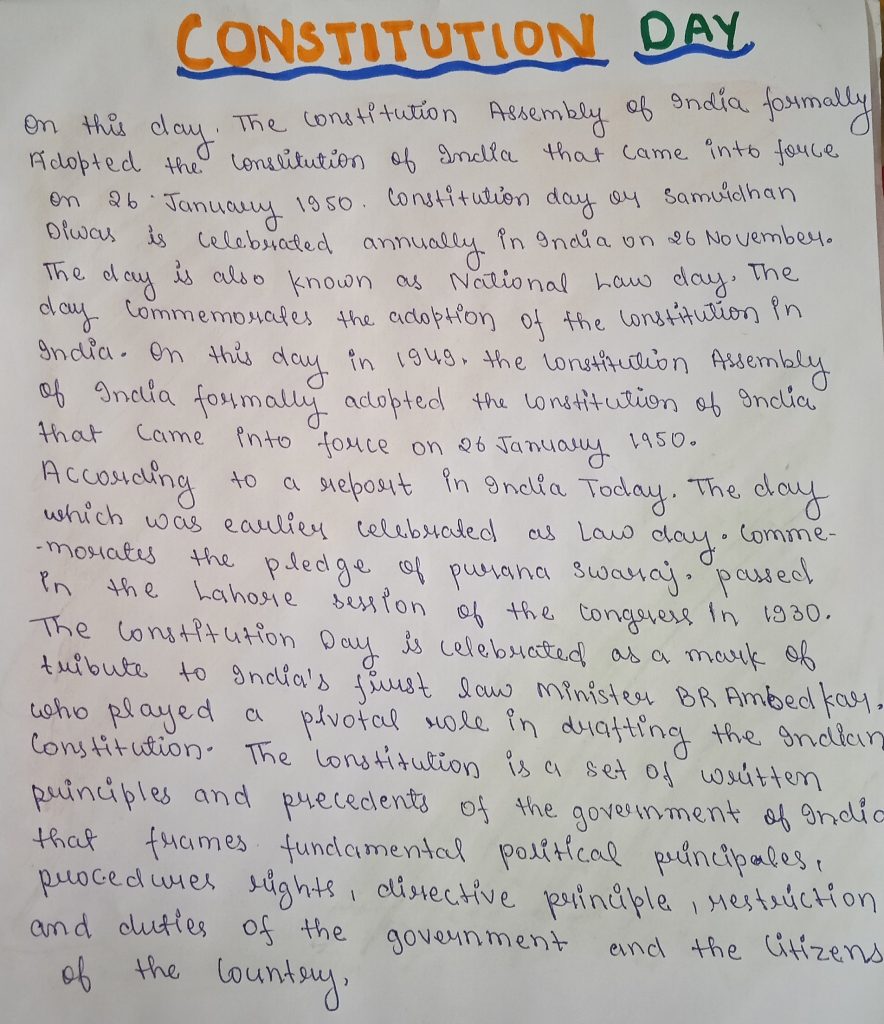 CONSTITUTION DAY
On this day. The Constitution Assembly of India formally
Adopted the Constitution of India that came into force
on 26 January 1950. Constitution day or Samvidhan
Diwas is celebrated annually in India on 26 November.
The day is also known as National Law day. The
day commemorates the adoption of the constitution in
India. On this day in 1949, the Constitution Assembly
of India formally adopted the constitution of India
that came into force on 26 January 1950.
According to a report in India Today. The day
which was earlier celebrated as Law day. Comme-
-morates the pledge of purana swaraj. passed
in the Lahore session of the congress in 1930.
The Constitution Day is celebrated as a mark of
tribute to India's first law minister BR Ambedkar.
who played a pivotal role in drafting the Indian
Constitution. The Constitution is a set of written
principles and precedents of the government of India
that frames fundamental political principales,
procedures rights, directive principle, restriction
and duties of the government and the Citizens
of the country,